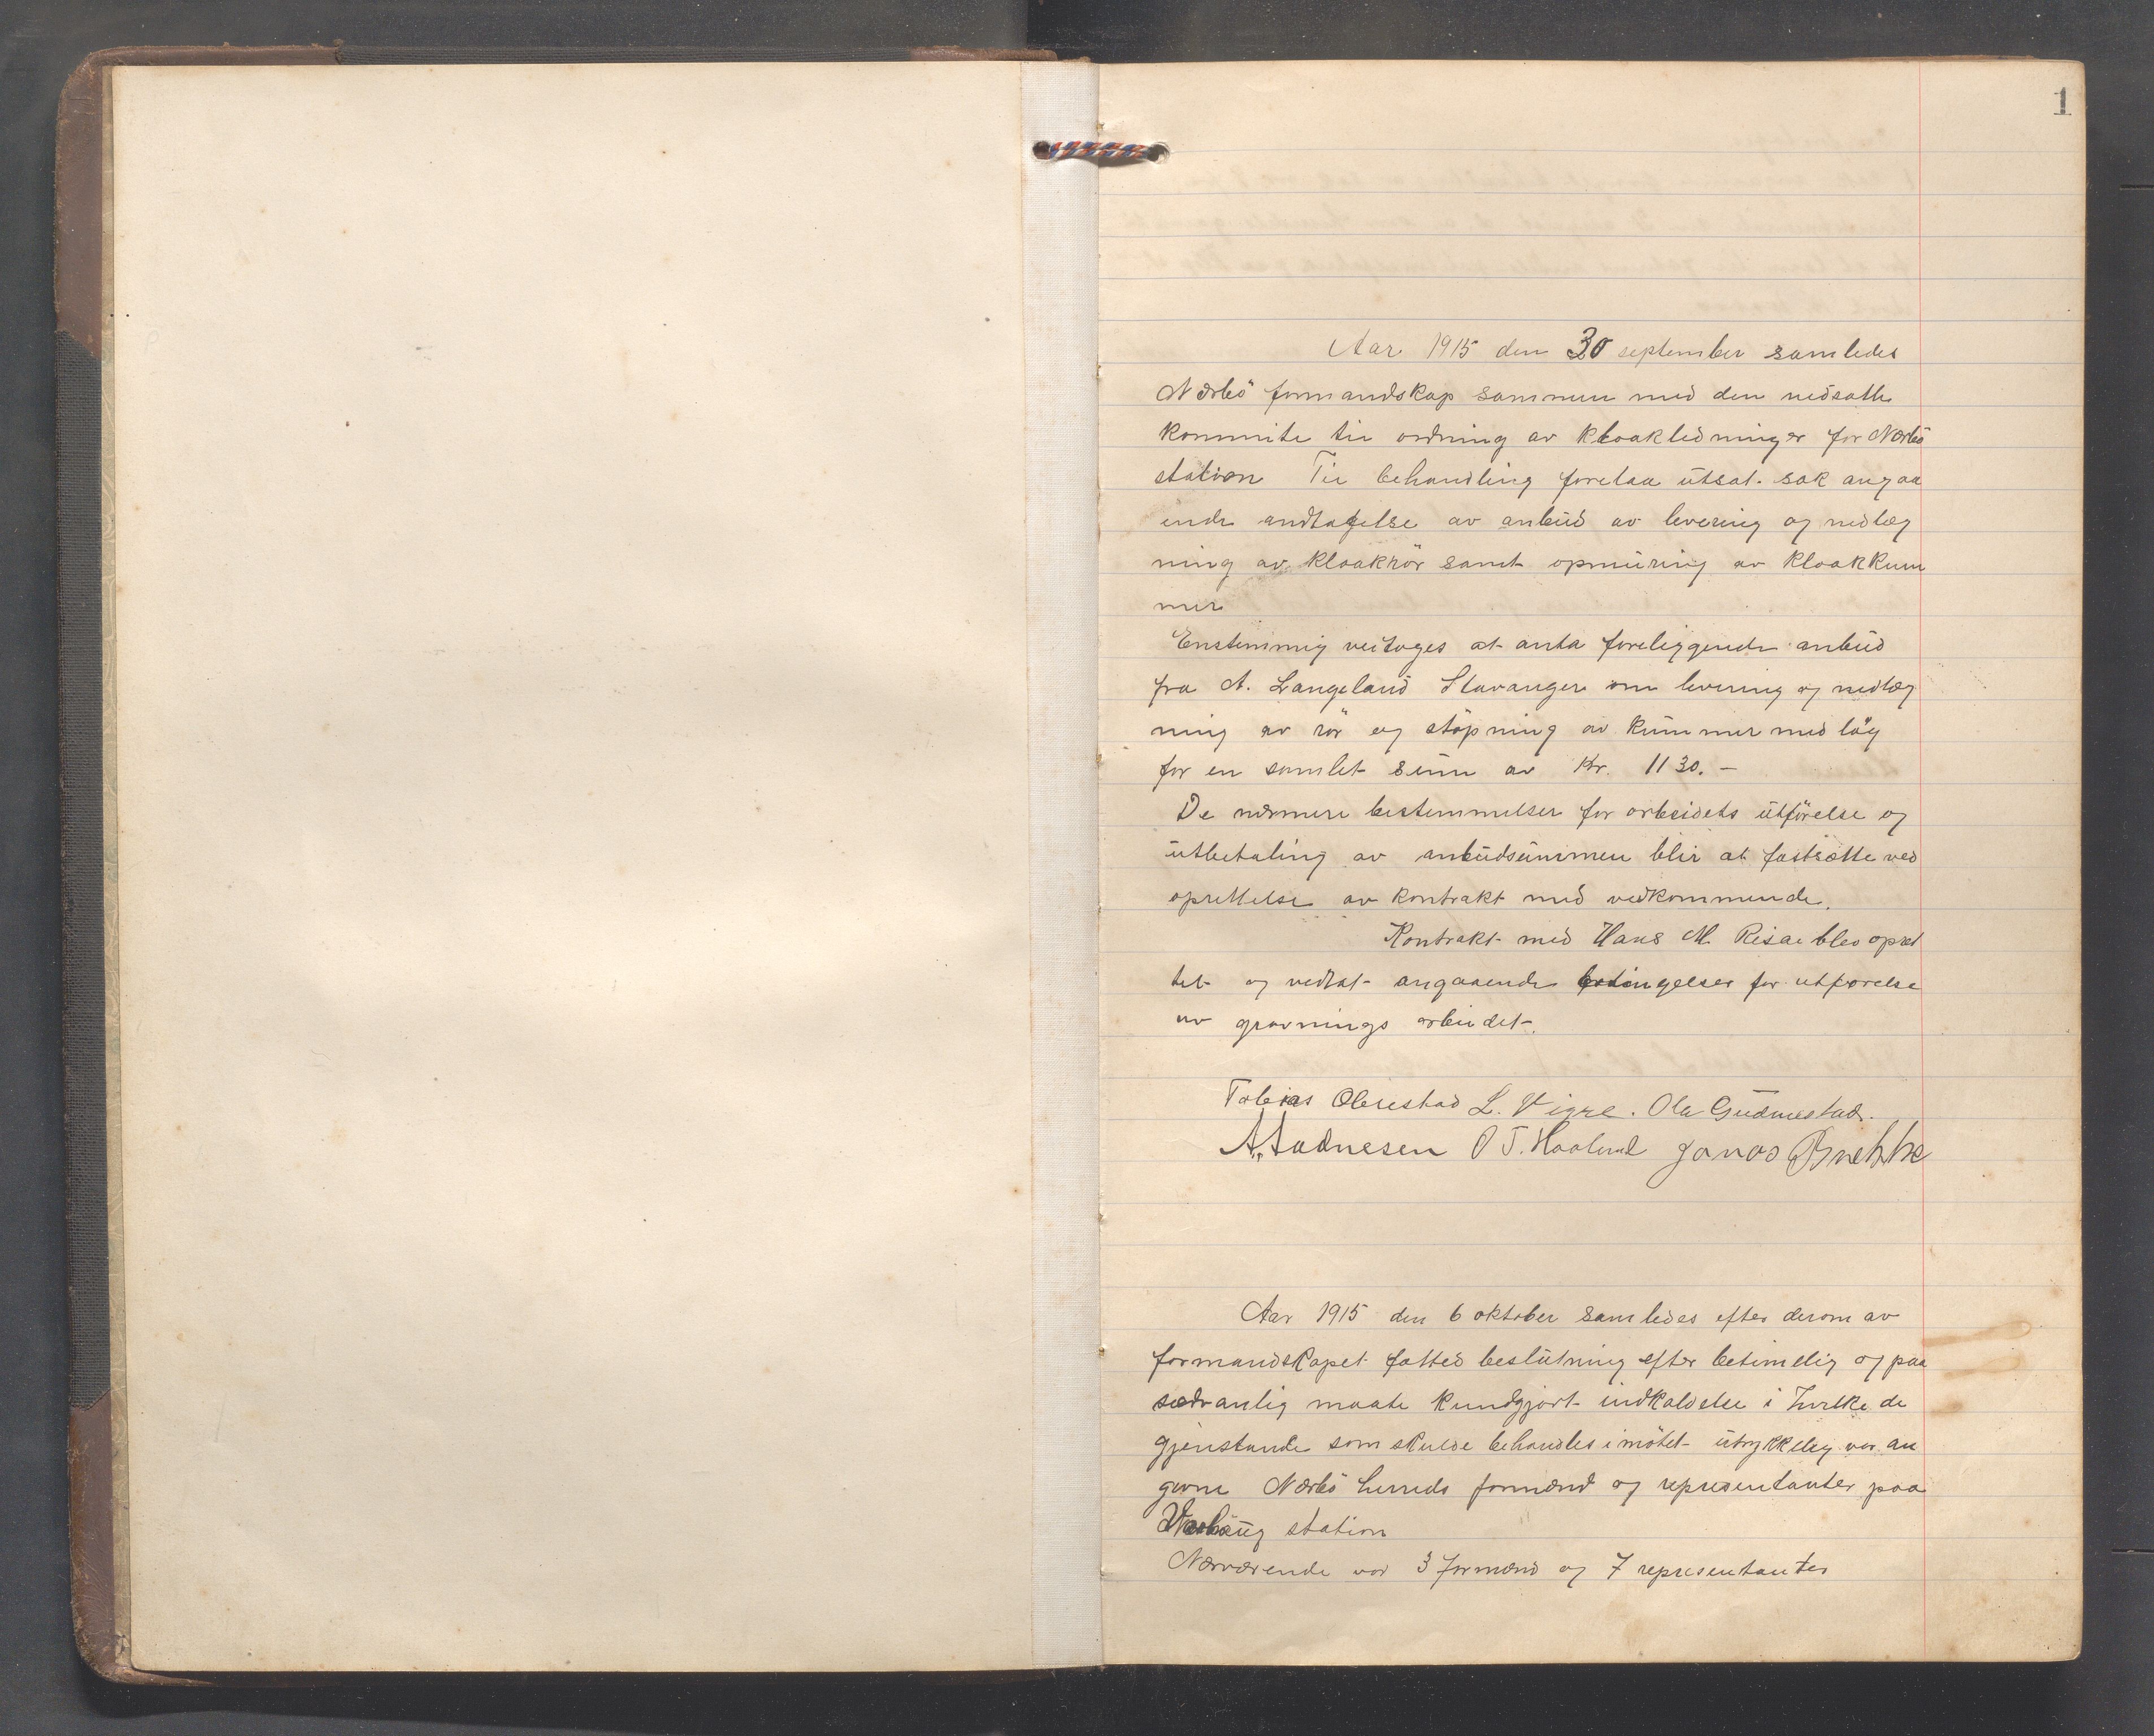 1
Aar 1915 den 30 september samledes
Nærbö formandskap sammen med den nedsatte
kommite til ordning av kloakledninger for Nærbö
station Til behandling forelaa utsat sak angaa
ende andtagelse av anbud av levering og nedlæg
ning av kloakrör samt opmuring av kloakkum
mer
Enstemmig vedtoges at anta foreliggende anbud
fra A. Langeland Stavanger om levering og nedlæg
ning av rör og stöpning av kummer med låg
for en samlet sum av Kr. 1130.-
De nærmere bestemmelser for arbeidets utförelse og
utbetaling av anbudsummen blir at fastsætte ved
oprettelse av kontrakt med vedkommende.
Kontrakt med Hans M. Risa blev opret
tet og vedtat angaaende betingelser for utförelse
av gravnings arbeidet.
Tobias Obrestad L. Vigre. Ola Gudmestad.
A. Aadnesen O T. Haaland Jonas Brekke
Aar 1915 den 6 oktober samledes efter derom av
formandskapet fatted beslutning efter betimelig og paa
sædvanlig maate kundgjort indkaldelse i hvilke de
gjenstande som skulde behandles i mötet utrykkelig var an
givne Nærbö herreds formænd og representanter paa
Varhaug station
Nærværende var 3 formænd og 7 representanter